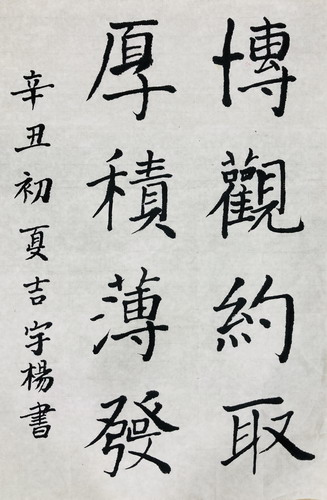 博觀約取
厚積薄發
辛丑初夏吉宇楊書